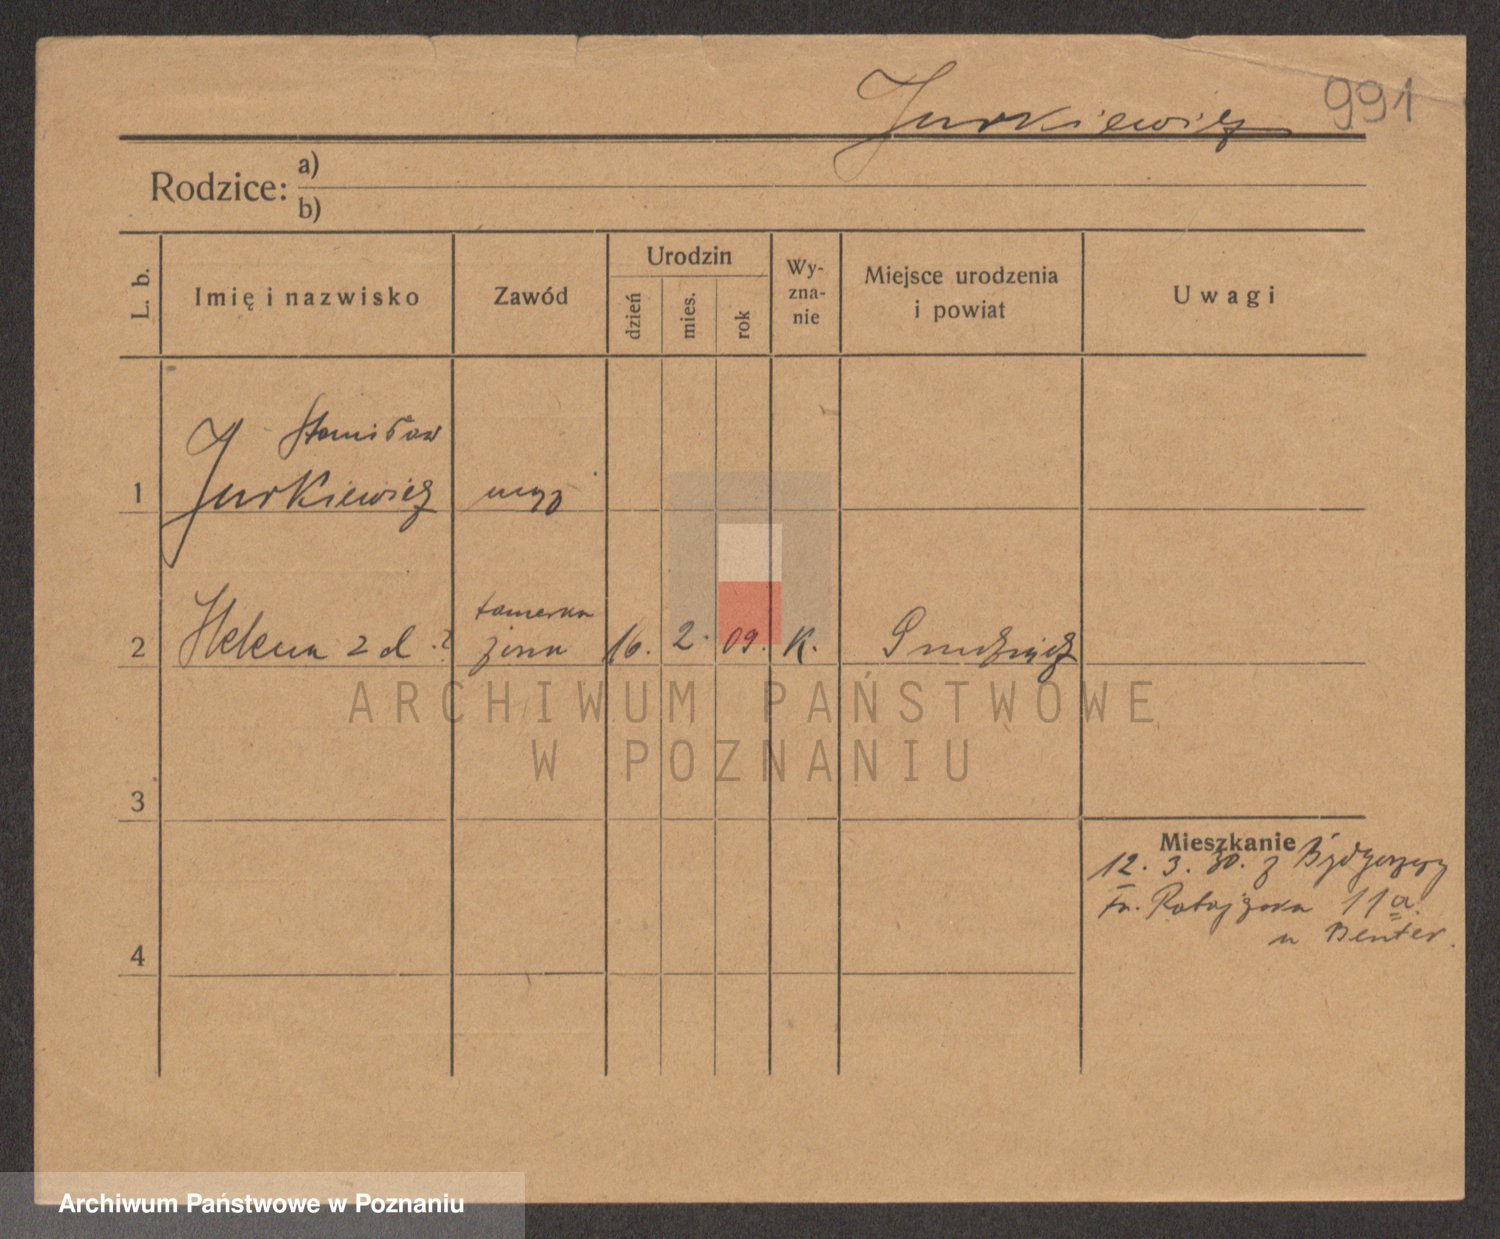 Jurkiewicz 991
Rodzice: a)
b)
L. b.
Imię i nazwisko
Zawód
Urodzin
dzień
mies.
rok
Wy-
zna-
nie
Miejsce urodzenia
i powiat
Uwagi
Stanisław
1 Jurkiewicz
2 Helena z d. ? żona 16. 2. 09. K.
3
Mieszkanie
12. 3. 30. z Bydgoszczy
Fr. Ratajczaka 11a
u Benter.
4
ARCHIWUM PAŃSTWOWE
W POZNANIU
Archiwum Państwowe w Poznaniu